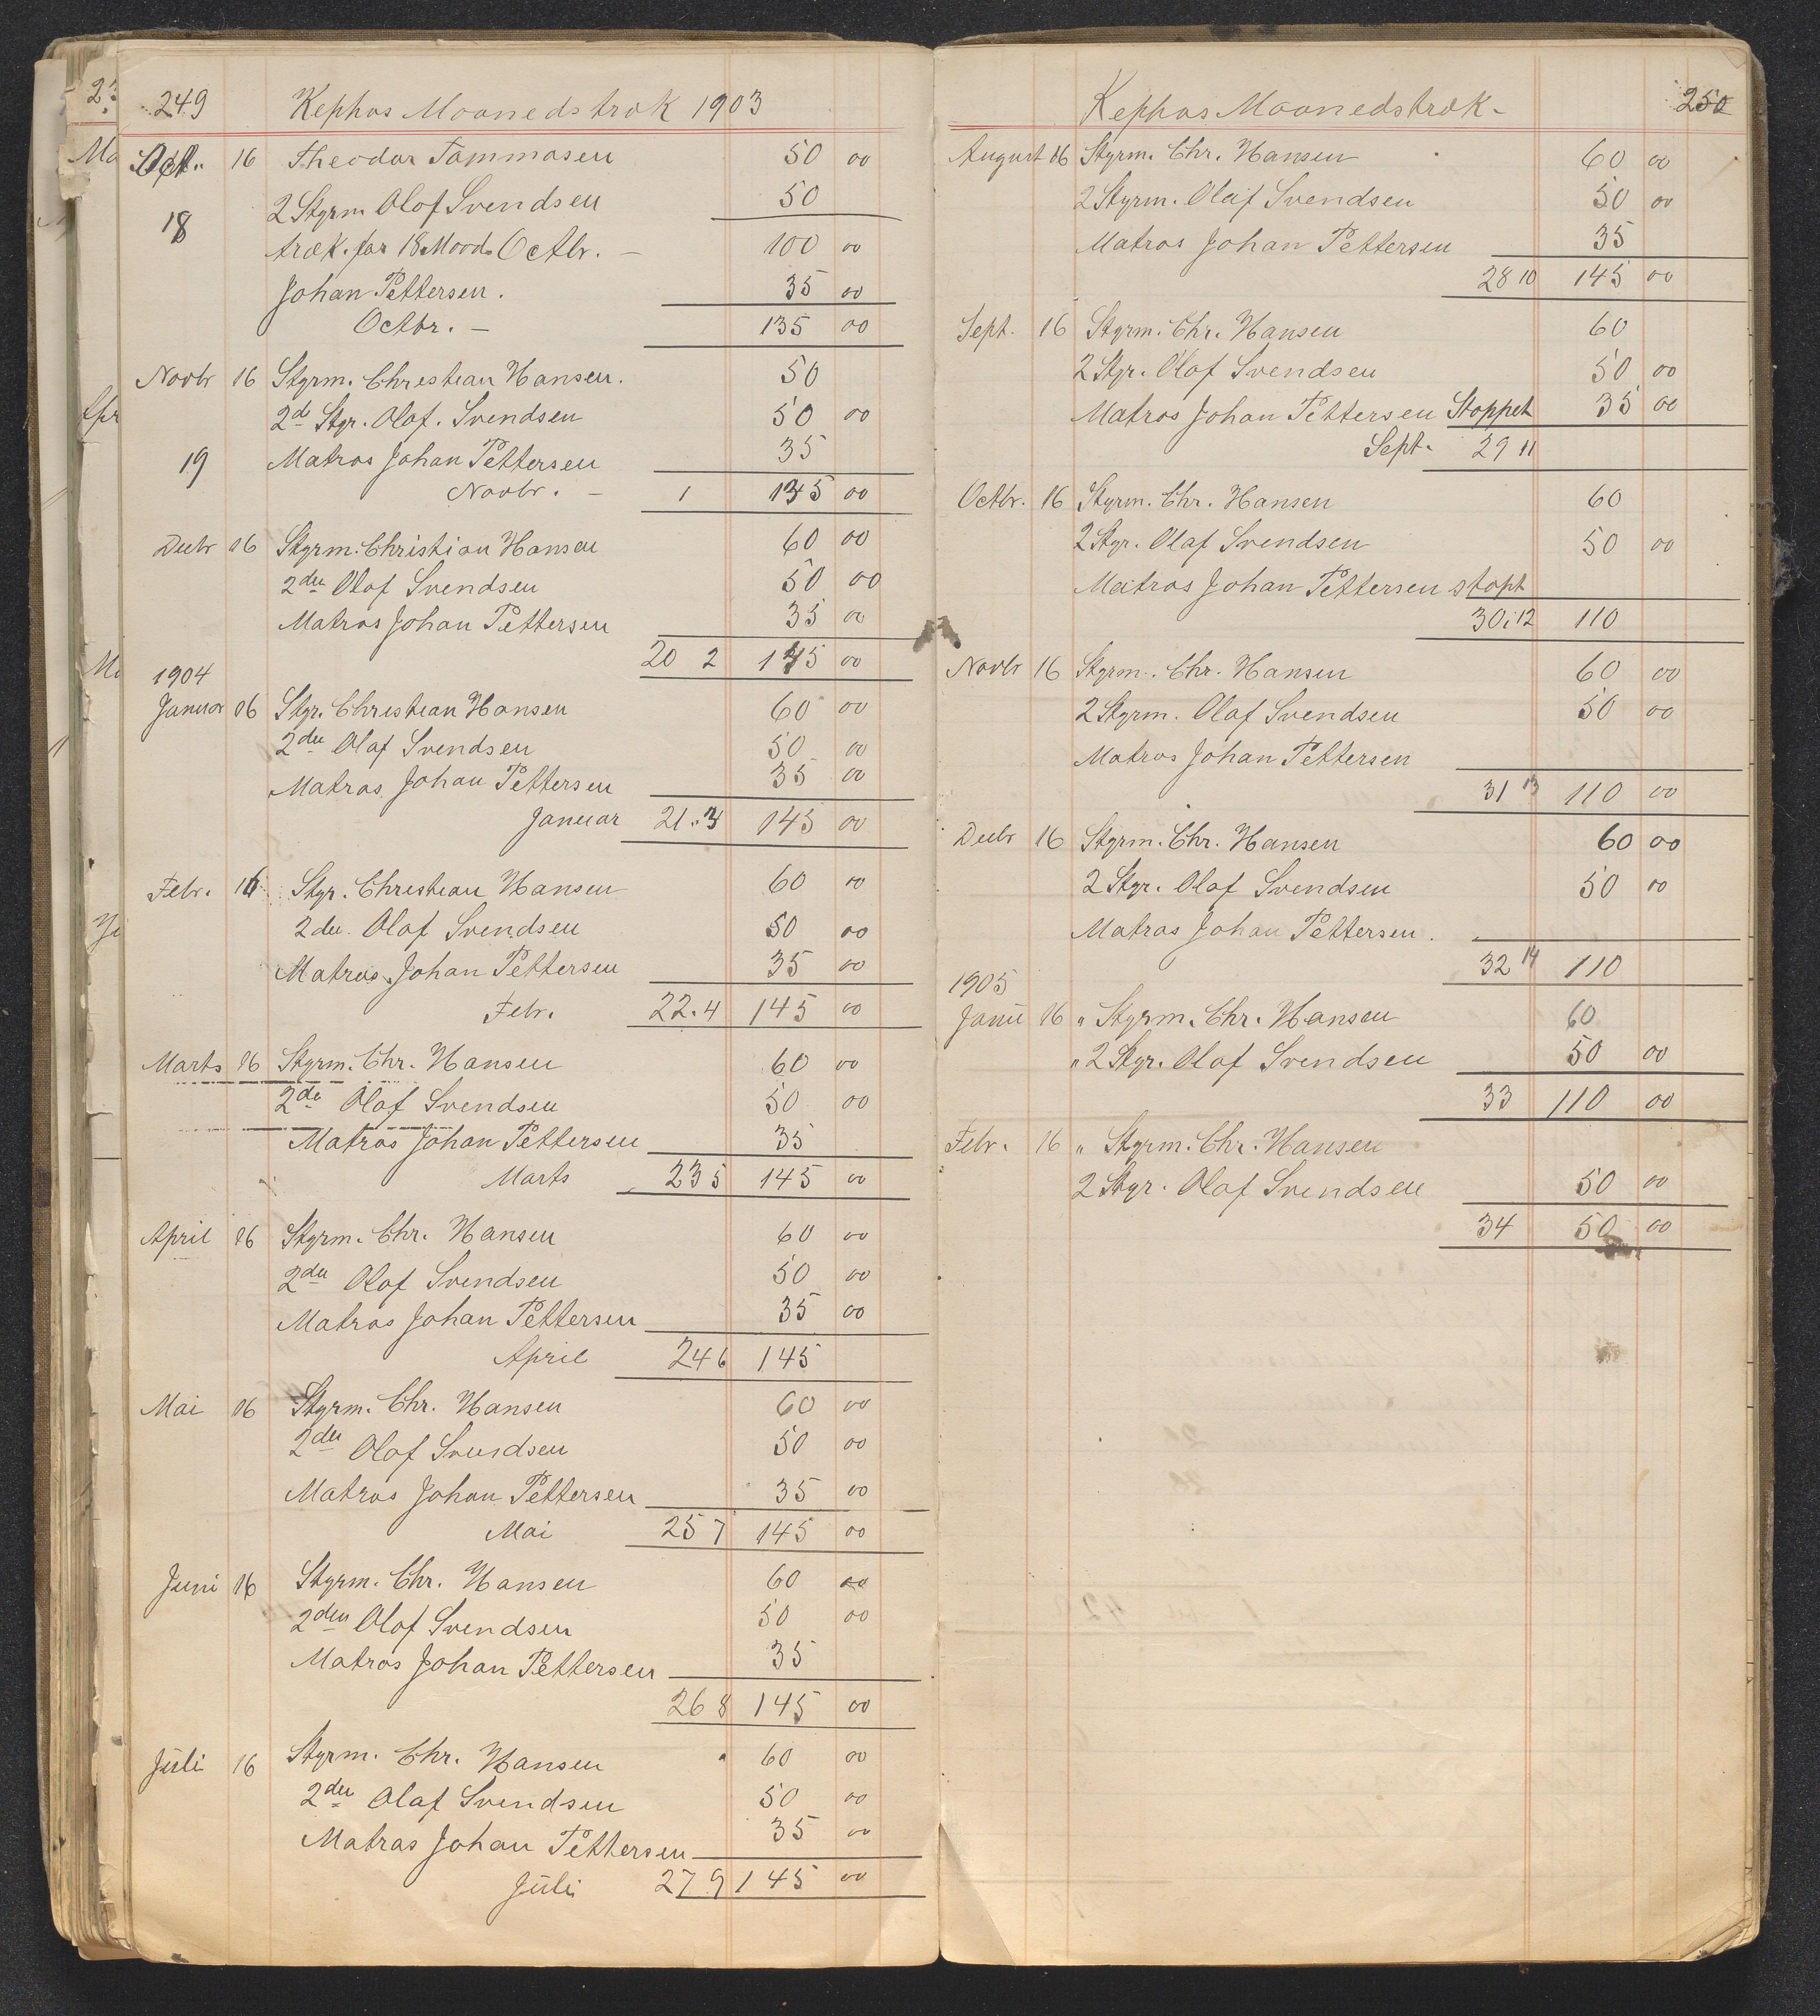 249 Kephas Maanedstræk 1903
Oct. 16 Theodor Tammasen 50 00
2 Styrm Olaf Svendsen 50
18
træk. for 18 Maad. Octbr. — 100 00
Johan Pettersen. 35 00
Octbr. — 135 00
Novbr 16 Styrm. Christian Hansen. 50
2d Styr. Olaf. Svendsen 50 00
19 Matros Johan Pettersen 35
Novbr. — 1 135 00
Decbr 16 Styrm. Christian Hansen 60 00
2den Olaf Svendsen 50 00
Matros Johan Pettersen 35 00
20 2 145 00
1904
Januar 16 Styr. Christian Hansen 60 00
2den Olaf Svendsen 50 00
Matros Johan Pettersen 35 00
Januar 21. 3 145 00
Febr. 16 Styr. Christian Hansen 60 00
2den Olaf Svendsen 50 00
Matros Johan Pettersen 35 00
Febr. 22. 4 145 00
Marts 16 Styrm. Chr. Hansen 60 00
2de Olaf Svendsen 50 00
Matros Johan Pettersen 35
Marts 23 5 145 00
April 16 Styrm. Chr. Hansen 60 00
2den Olaf Svendsen 50 00
Matros Johan Pettersen 35 00
April 24 6 145
Mai 16 Styrm. Chr. Hansen 60 00
2den Olaf Svendsen 50 00
Matros Johan Pettersen 35 00
Mai 25 7 145 00
Juni 16 Styrm. Chr. Hansen 60 00
2den Olaf Svendsen 50 00
Matros Johan Pettersen 35
26 8 145 00
Juli 16 Styrm. Chr. Hansen 60 00
2den Olaf Svendsen 50 00
Matros Johan Pettersen 35 00
Juli 27 9 145 00
Kephas Maanedstræk - 250
August 16 Styrm. Chr. Hansen 60 00
2 Styrm. Olaf Svendsen 50 00
Matros Johan Pettersen 35
28 10 145 00
Sept. 16 Styrm. Chr. Hansen 60
2 Styr. Olaf Svendsen 50 00
Matros Johan Pettersen Stoppet 35 00
Sept. 29 11
Octbr. 16 Styrm. Chr. Hansen 60
2 Styr. Olaf Svendsen 50 00
Matros Johan Pettersen stopt
30. 12 110
Novbr 16 Styrm. Chr. Hansen 60 00
2 Styrm. Olaf Svendsen 50 00
Matros Johan Pettersen
31 13 110 00
Decbr 16 Styrm. Chr. Hansen 60 00
2 Styr. Olaf Svendsen 50 00
Matros Johan Pettersen.
32 14 110
1905
Janu 16 " Styrm. Chr. Hansen 60
" 2 Styr. Olaf Svendsen 50 00
33 110 00
Febr. 16 " Styrm. Chr. Hansen
2 Styr. Olaf Svendsen 50 00
34 50 00